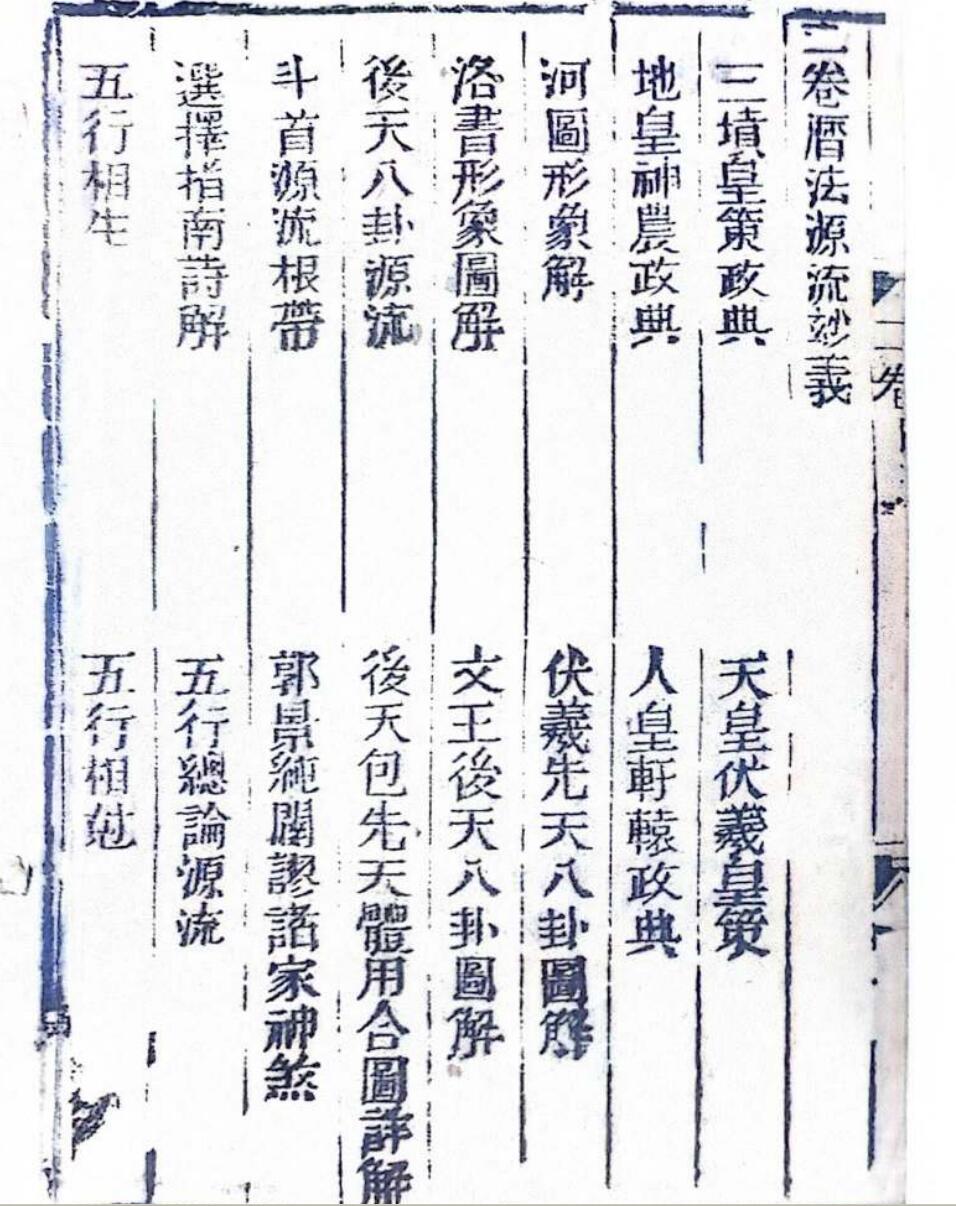 二卷曆法源流妙義
三墳皇策政典
天皇伏羲皇策
地皇神農政典
人皇軒轅政典
河圖形象解
伏羲先天八卦圖解
洛書形象圖解
文王後天八卦圖解
後天八卦源流
後天包先天體用合圖詳解
斗首源流根帶
郭景純闢謬諸家神煞
選擇指南詩解
五行總論源流
五行相生
五行相尅
二卷